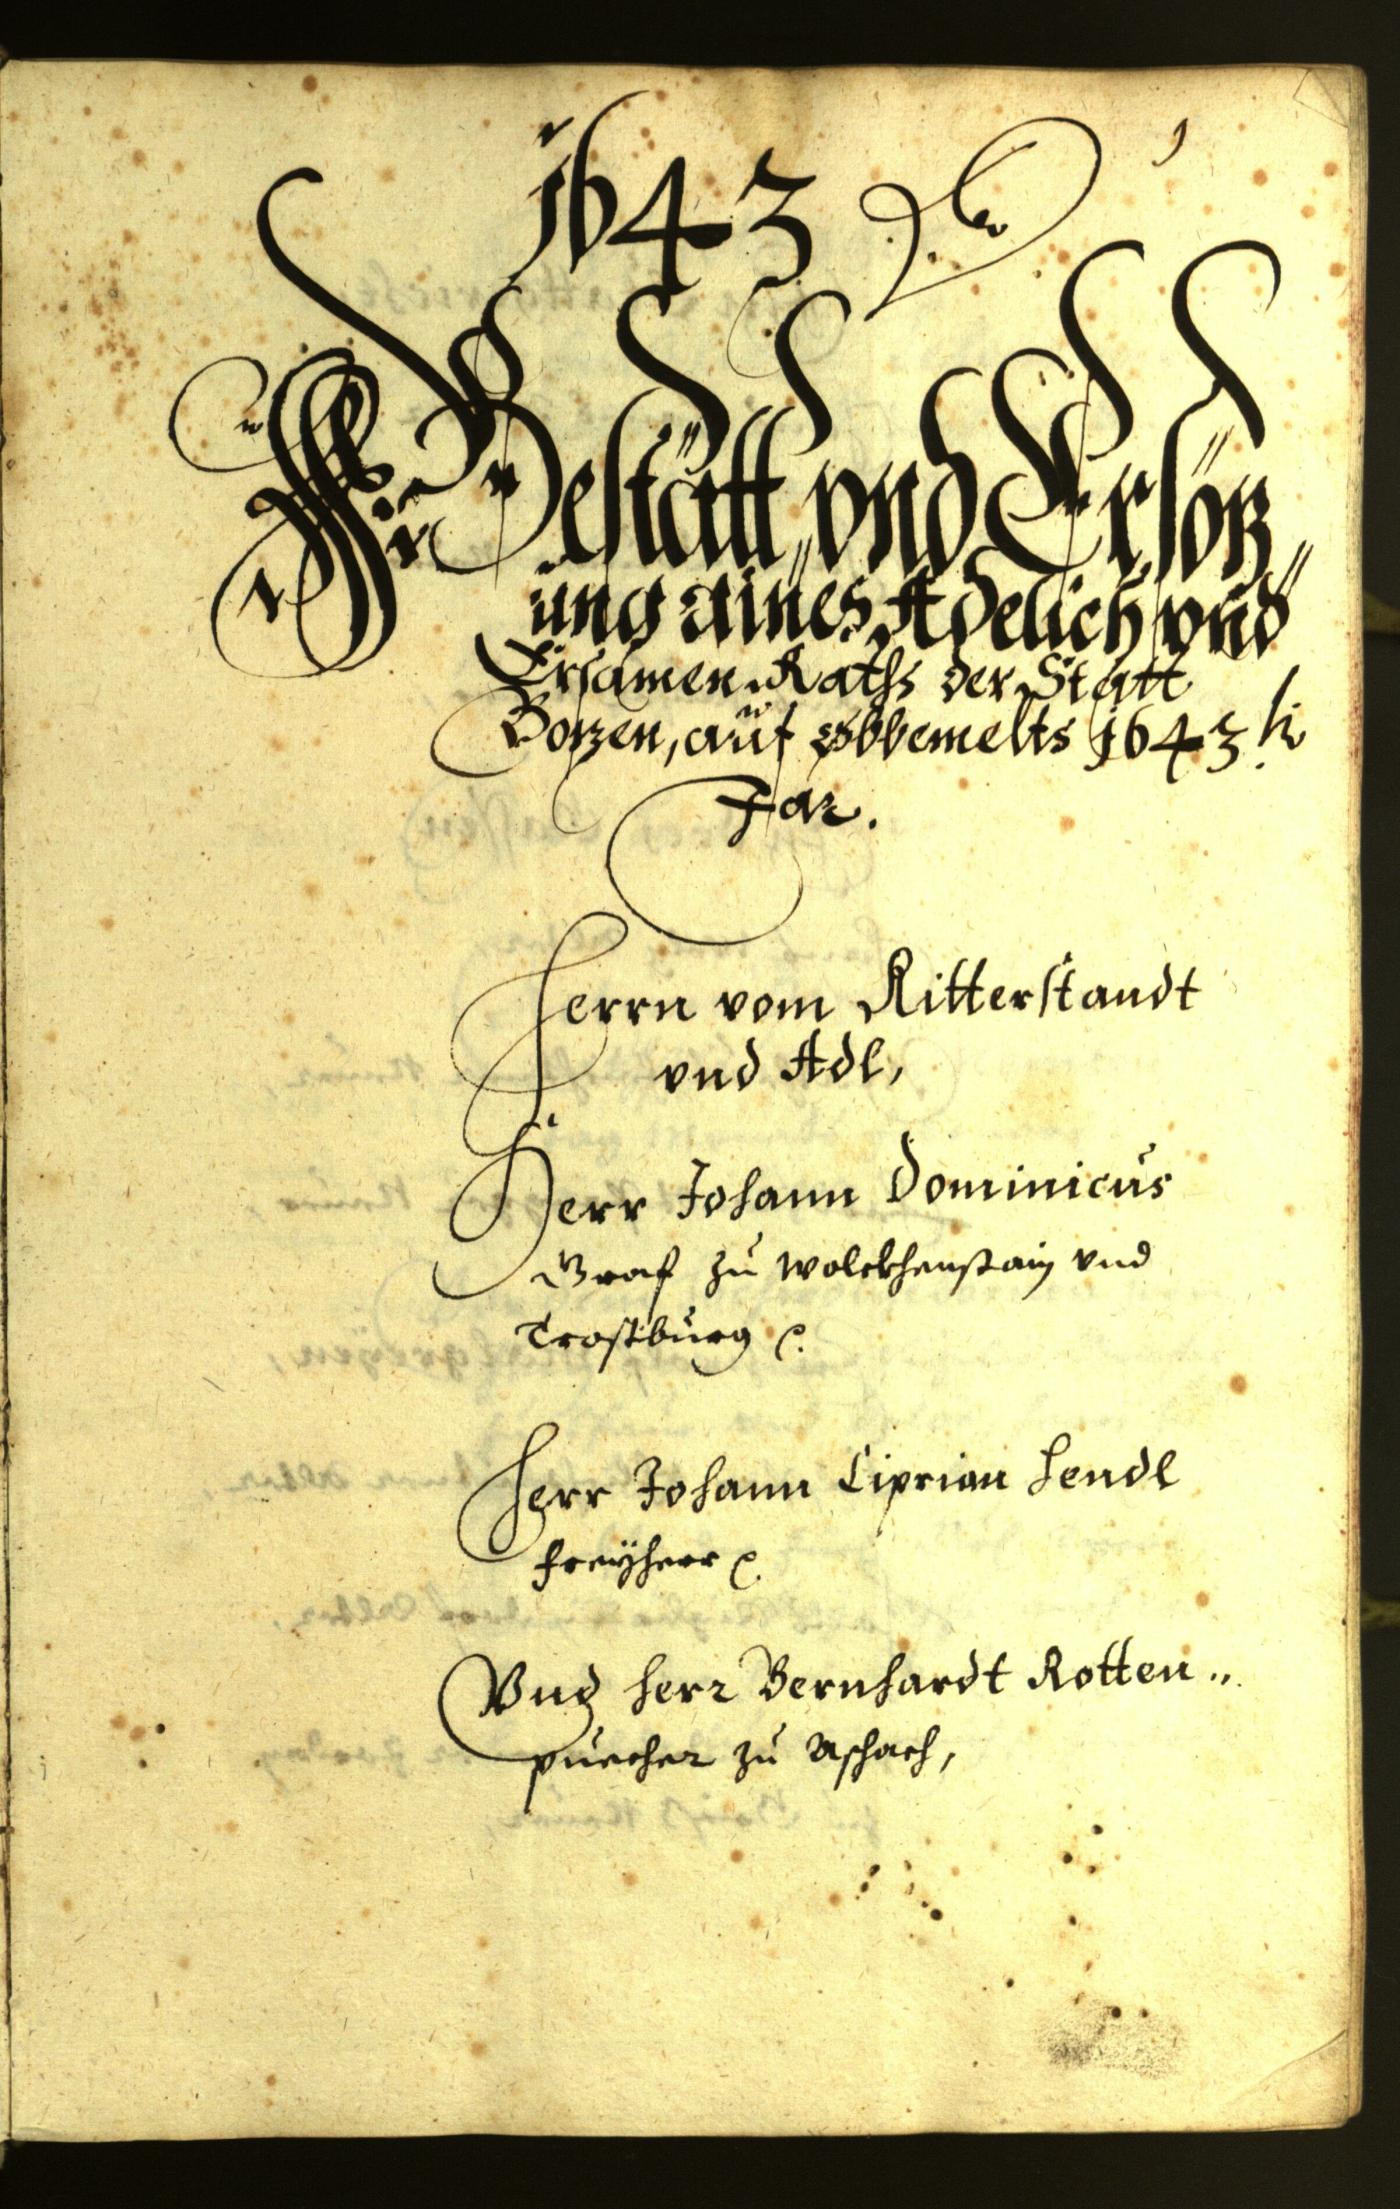 1
1643
Fir Bestätt„ und Ersötz„
ung aines Adelich und
Ersamen Raths der Statt
Botzen, auf obbemelts 1643.
Jar.
Herrn vom Ritterstandt
vnd Adl,
Herr Johann Dominicus
Graf zu Wolckhenstain vnd
Trostburg
Herr Johann Ciprian Hendl
Freÿherr
Vnd Herr Bernhardt Rotten„
puecher zu Aschach,